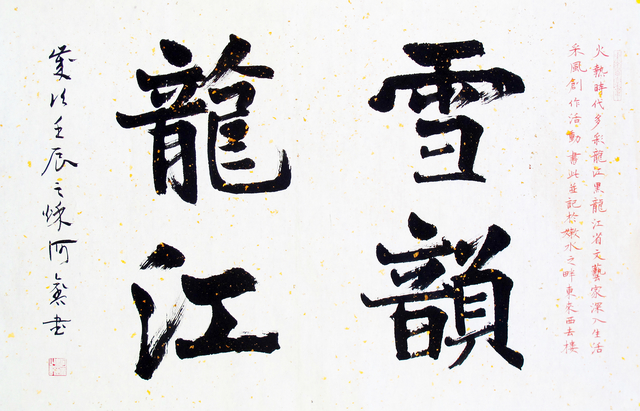 火熱時代多彩龍江黑龍江省文藝家深入生活
采風創作活動書此並記於嫩水之畔東來西去樓
雪韻
龍江
歲次壬辰之秌何書